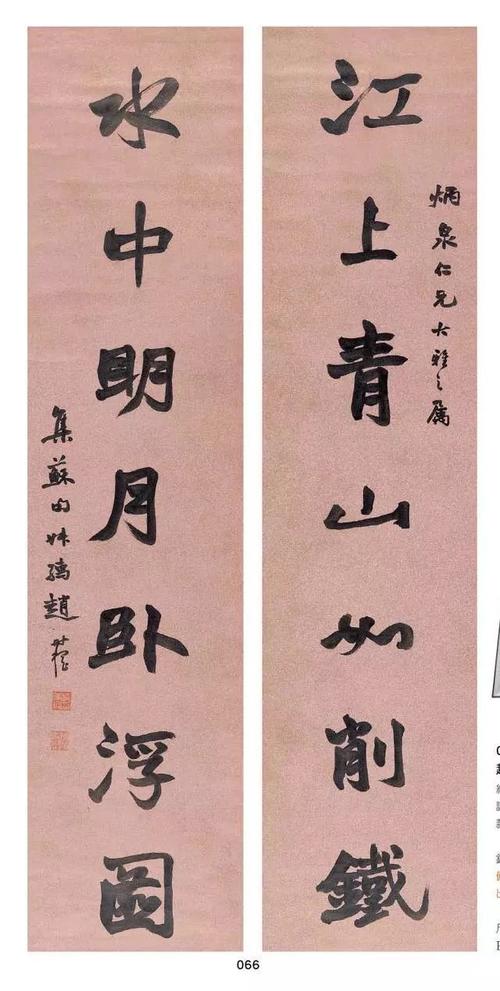 炳泉仁兄大雅之屬
江上青山如削鐵
水中明月臥浮圖
集蘇句叔孺趙時棡
066